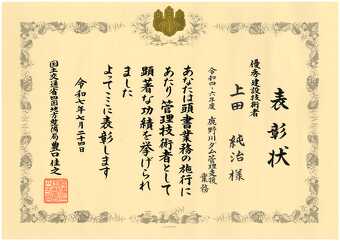 表彰状
優秀建設技術者
上田 純治 様
令和四・六年度 鹿野川ダム管理支援
業務
あなたは頭書業務の施行に
あたり管理技術者として
顕著な功績を挙げられ
ました
よってここに表彰します
令和七年七月二十四日
国土交通省四国地方整備局長 豊口佳之